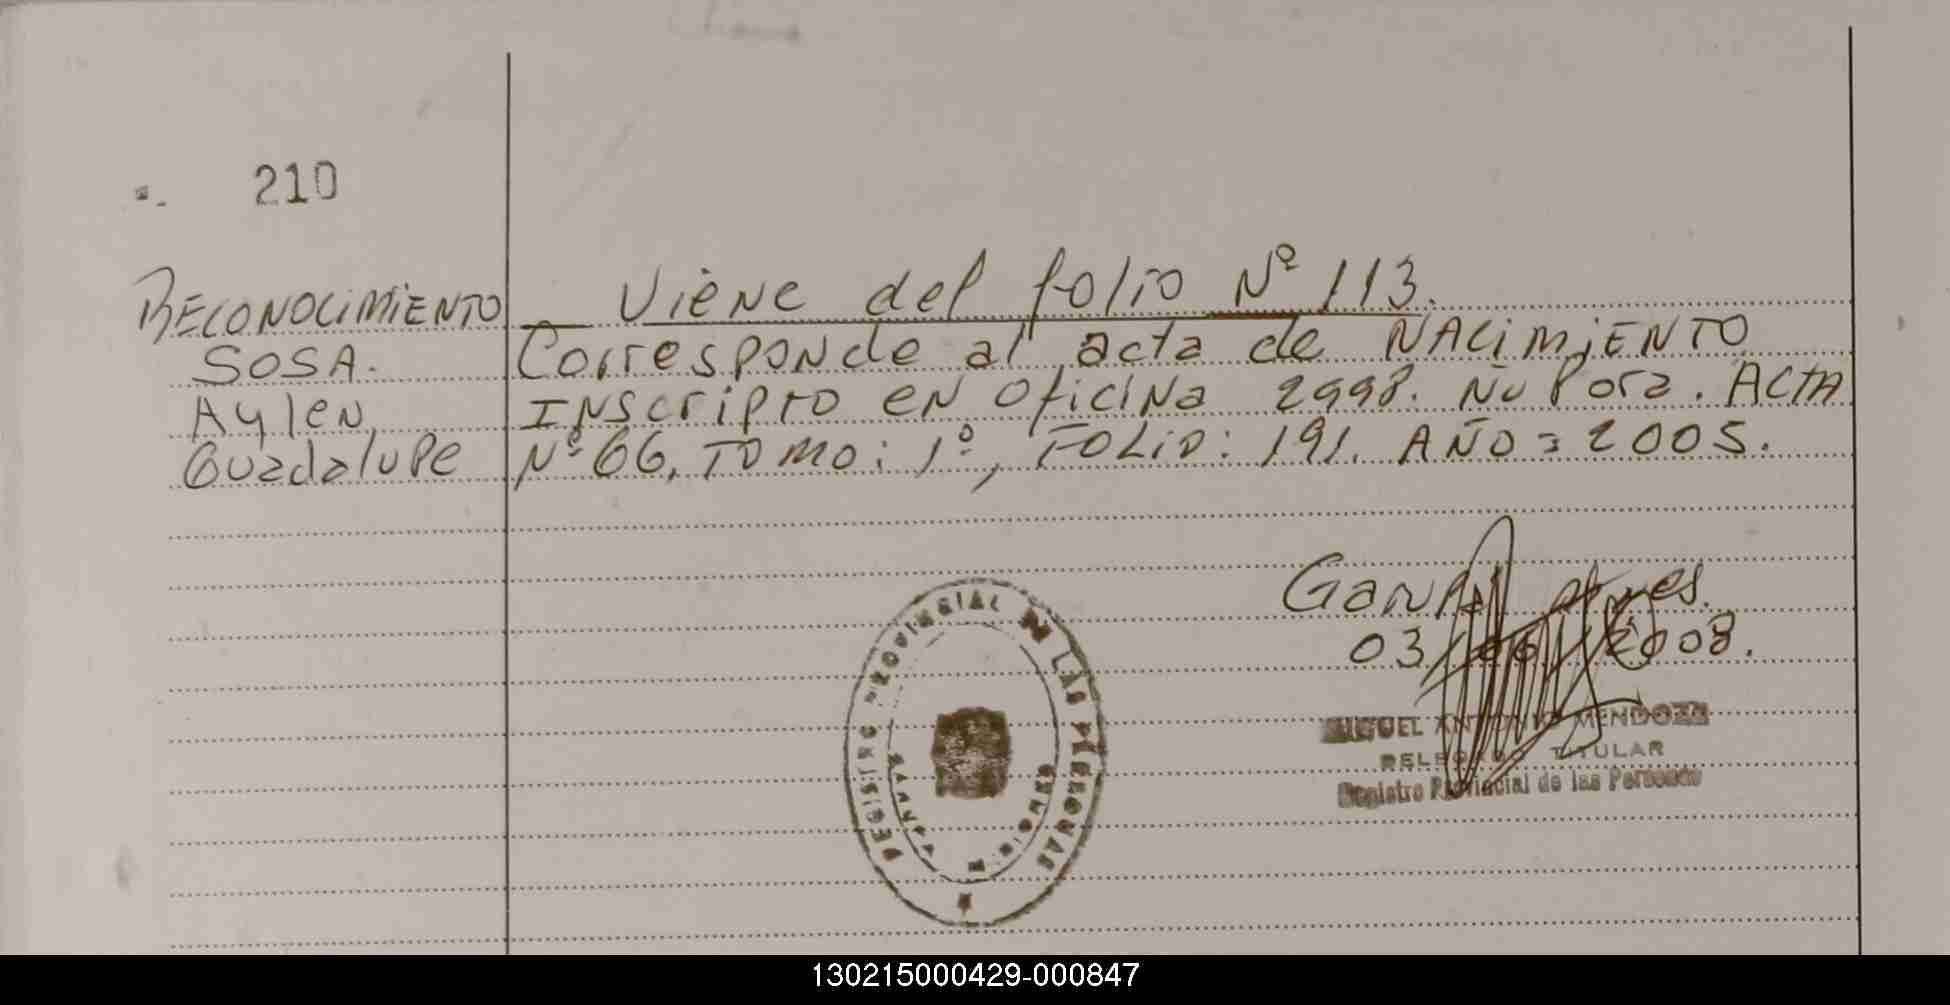 210
RECONOCIMIENTO
SOSA.
Aylen
Guadalupe
Viene del folio Nº 113.
Corresponde al acta de NACIMIENTO
Inscripto en oficina 2998. Ñu Pora. ACTA
Nº 66, TOMO: 1º, FOLIO: 191. AÑO = 2005.
03 2008.
MIGUEL ANTONIO MENDOZA
DELEGADO TITULAR
Registro Provincial de las Personas
REGISTRO PROVINCIAL LAS PERSONAS
130215000429-000847